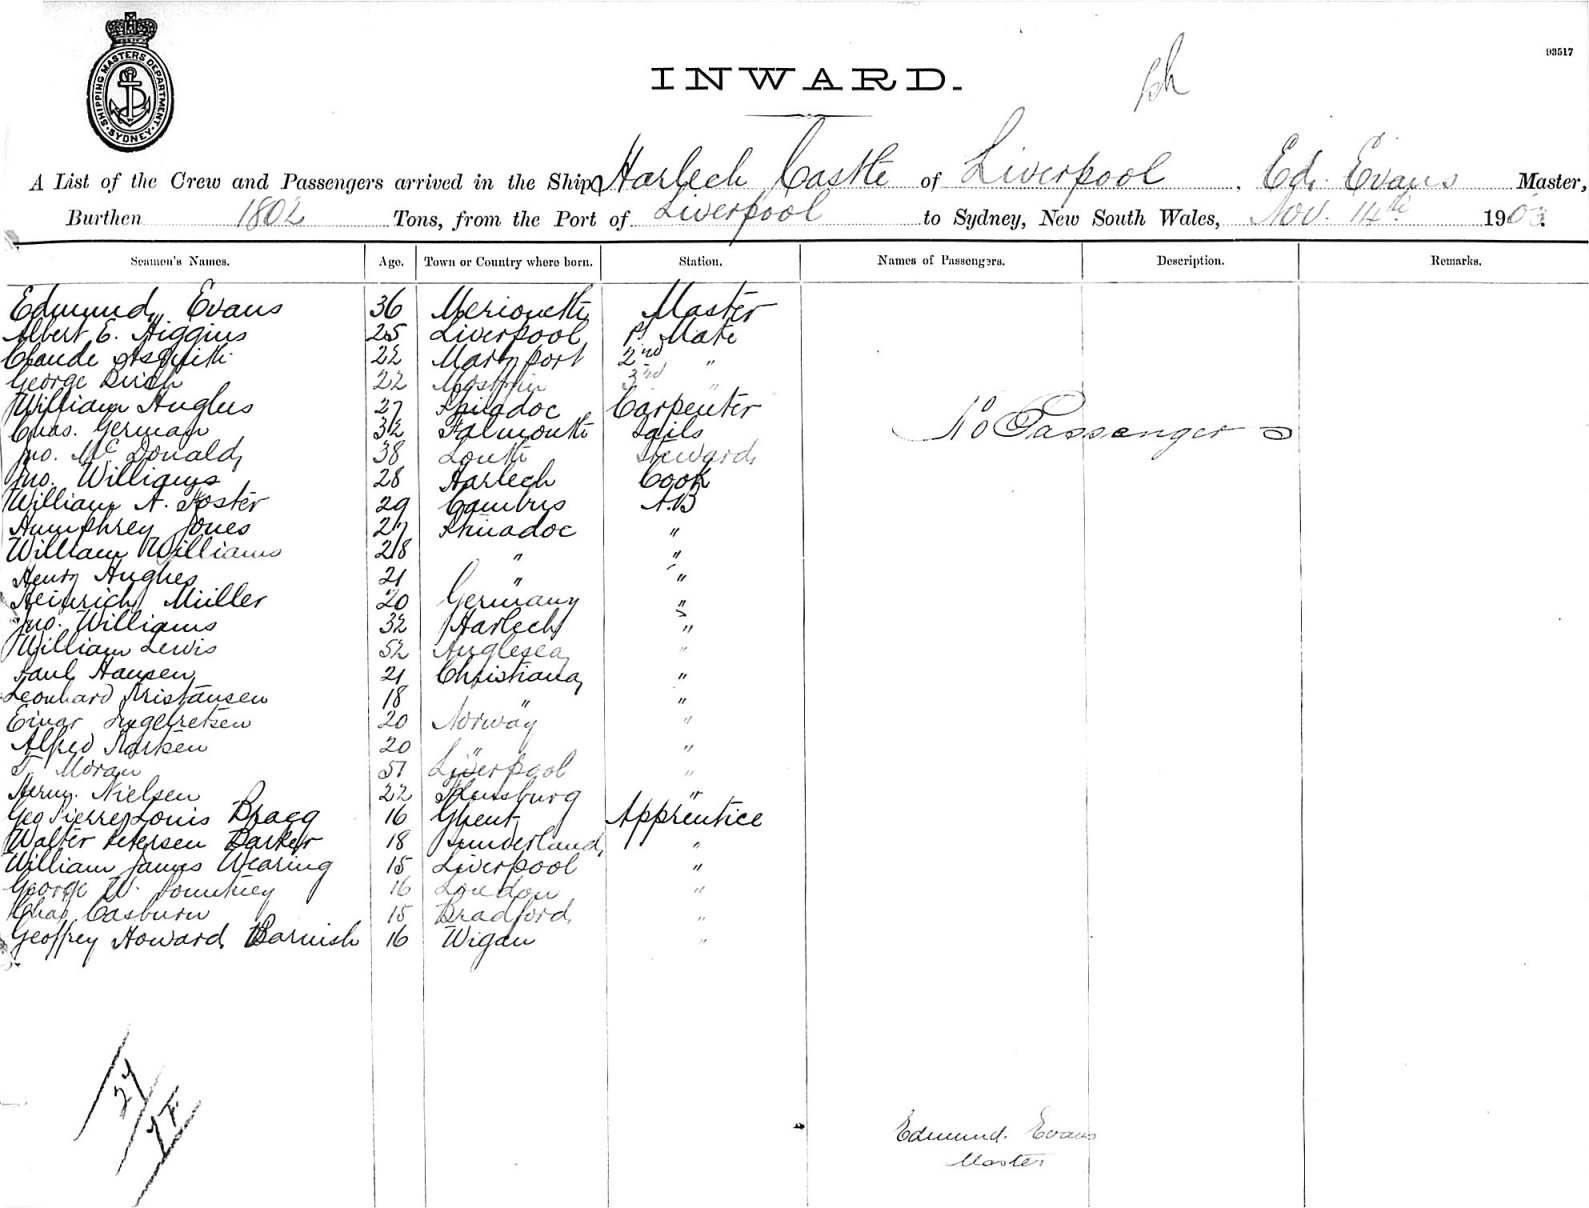 SHIPPING MASTERS DEPARTMENT. SYDNEY
93517
INWARD.
A List of the Crew and Passengers arrived in the Ship Harlech Castle of Liverpool, Ed. Evans Master,
Burthen 1802 Tons, from the Port of Liverpool to Sydney, New South Wales, Nov. 14th 1903.
Seamen's Names. Age. Town or Country where born. Station. Names of Passengers. Description. Remarks.
Edmund Evans 36 Merioneth Master
Albert E. Higgins 25 Liverpool Mate
Claude Asquith 22 Maryport 2nd "
George 22 Mostyn 3rd "
William Hughes 27 Carpenter
Chas. German 32 Falmouth Sails
No Passengers
Jno. McDonald 38 Louth Steward
Jno. Williams 28 Harlech Cook
William A. Foster 29 A.B
Humphrey Jones 27 "
William Williams 28 " "
Henry Hughes 21 " "
Heinrich Müller 20 Germany "
Jno. Williams 32 Harlech "
William Lewis 52 Anglesea "
Paul Hansen 21 Christiana "
Leonhard Kristansen 18 " "
Einar Ingebretsen 20 Norway "
Alfred 20 " "
T Moran 51 Liverpool "
Herm. Nielsen 22 Flensburg "
Geo Pierre Louis Bragg 16 Ghent Apprentice
Walter Petersen Barker 18 Sunderland "
William James Wearing 15 Liverpool "
George W. Pountney 16 London "
Chas Casburn 15 Bradford "
Geoffrey Howard Barnish 16 Wigan "
27
Edmund. Evans
Master